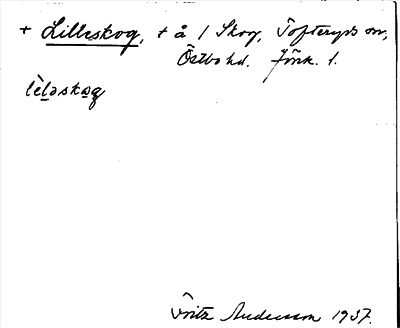 + Lilleskog, + å / Skog, Tofteryds sn,
Östbo hd. Jönk. l.
lèləskog
Fritz Andersson 1937.